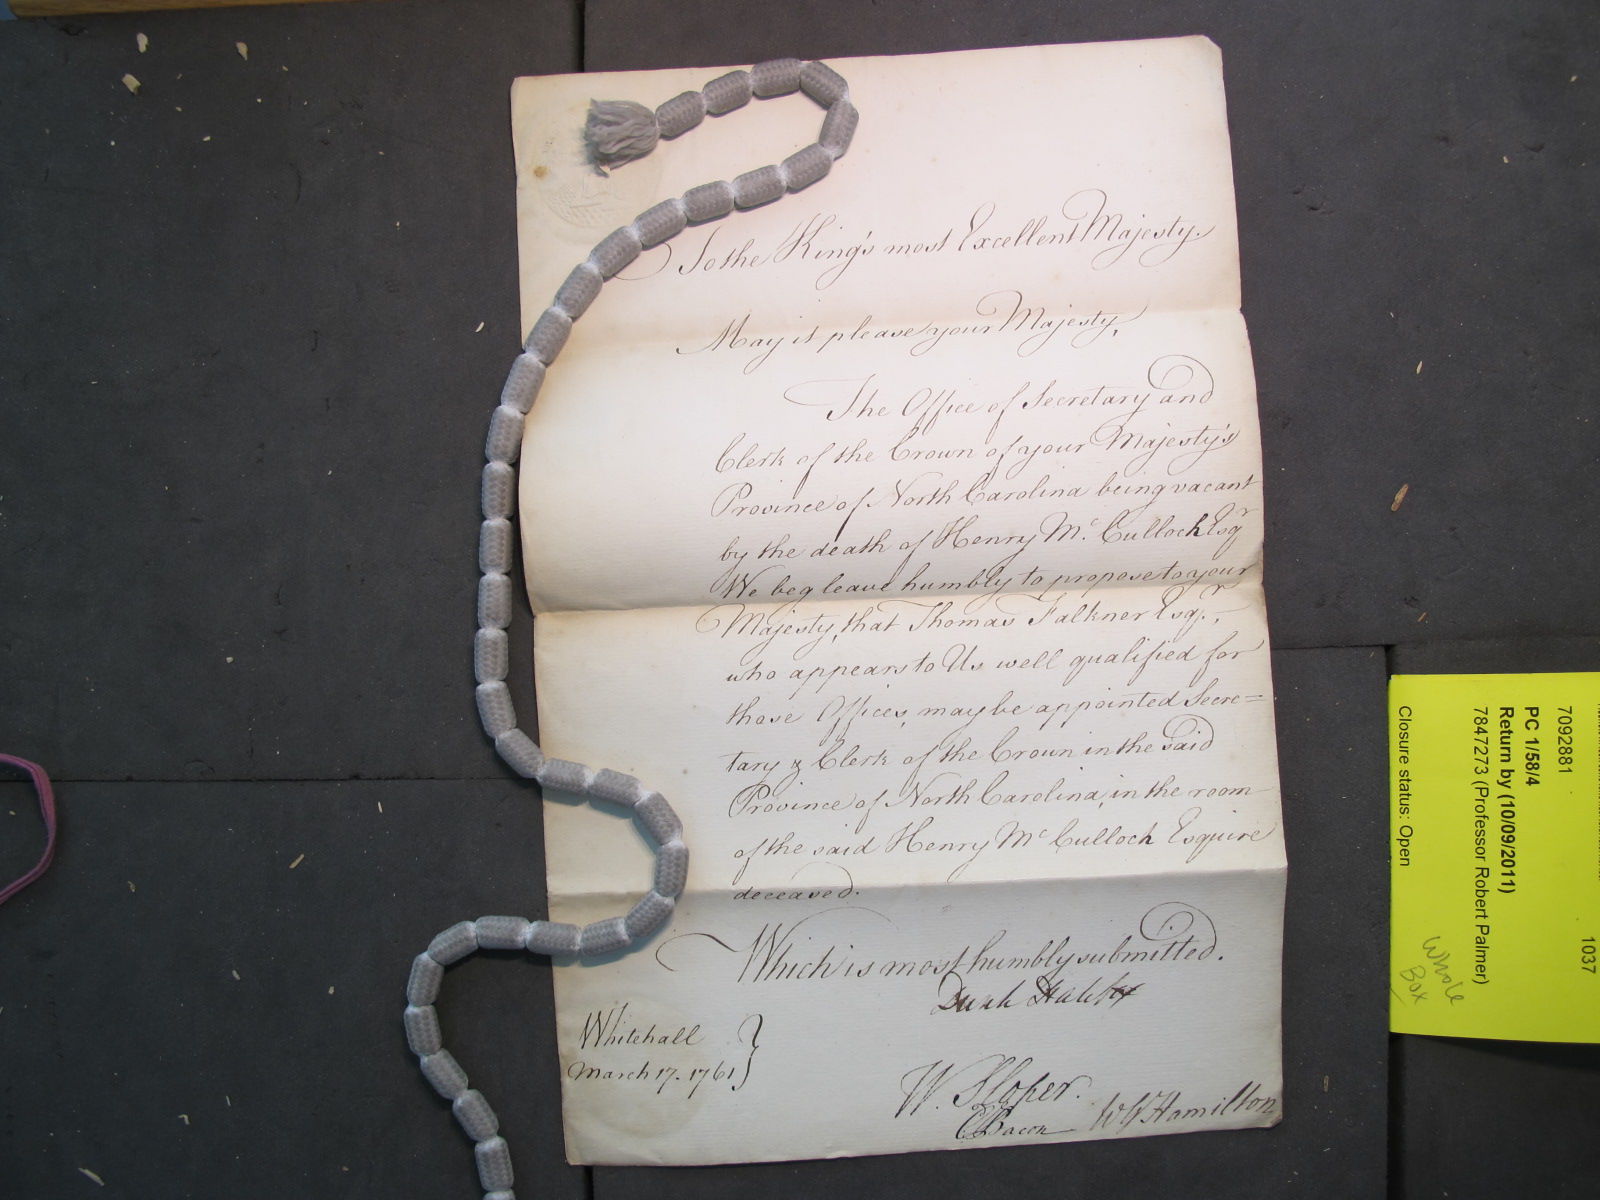 To the King's most Excellent Majesty.
May it please your Majesty,
The Office of Secretary and
Clerk of the Crown of your Majesty's
Province of North Carolina being vacant
by the death of Henry Mc. Culloch Esqr
We beg leave humbly to propose to your
Majesty, that Thomas Falkner Esqr.,
who appears to Us well qualified for
those Offices, may be appointed Secre=
tary & Clerk of the Crown in the said
Province of North Carolina, in the room
of the said Henry Mc Culloch Esquire
deceased.
Which is most humbly submitted.
Dunk Halifax
W. Sloper.
E Bacon
W G Hamilton
Whitehall
March 17. 1761
1037
7092881
PC 1/58/4
Return by (10/09/2011)
7847273 (Professor Robert Palmer)
Closure status: Open
Whole
Box